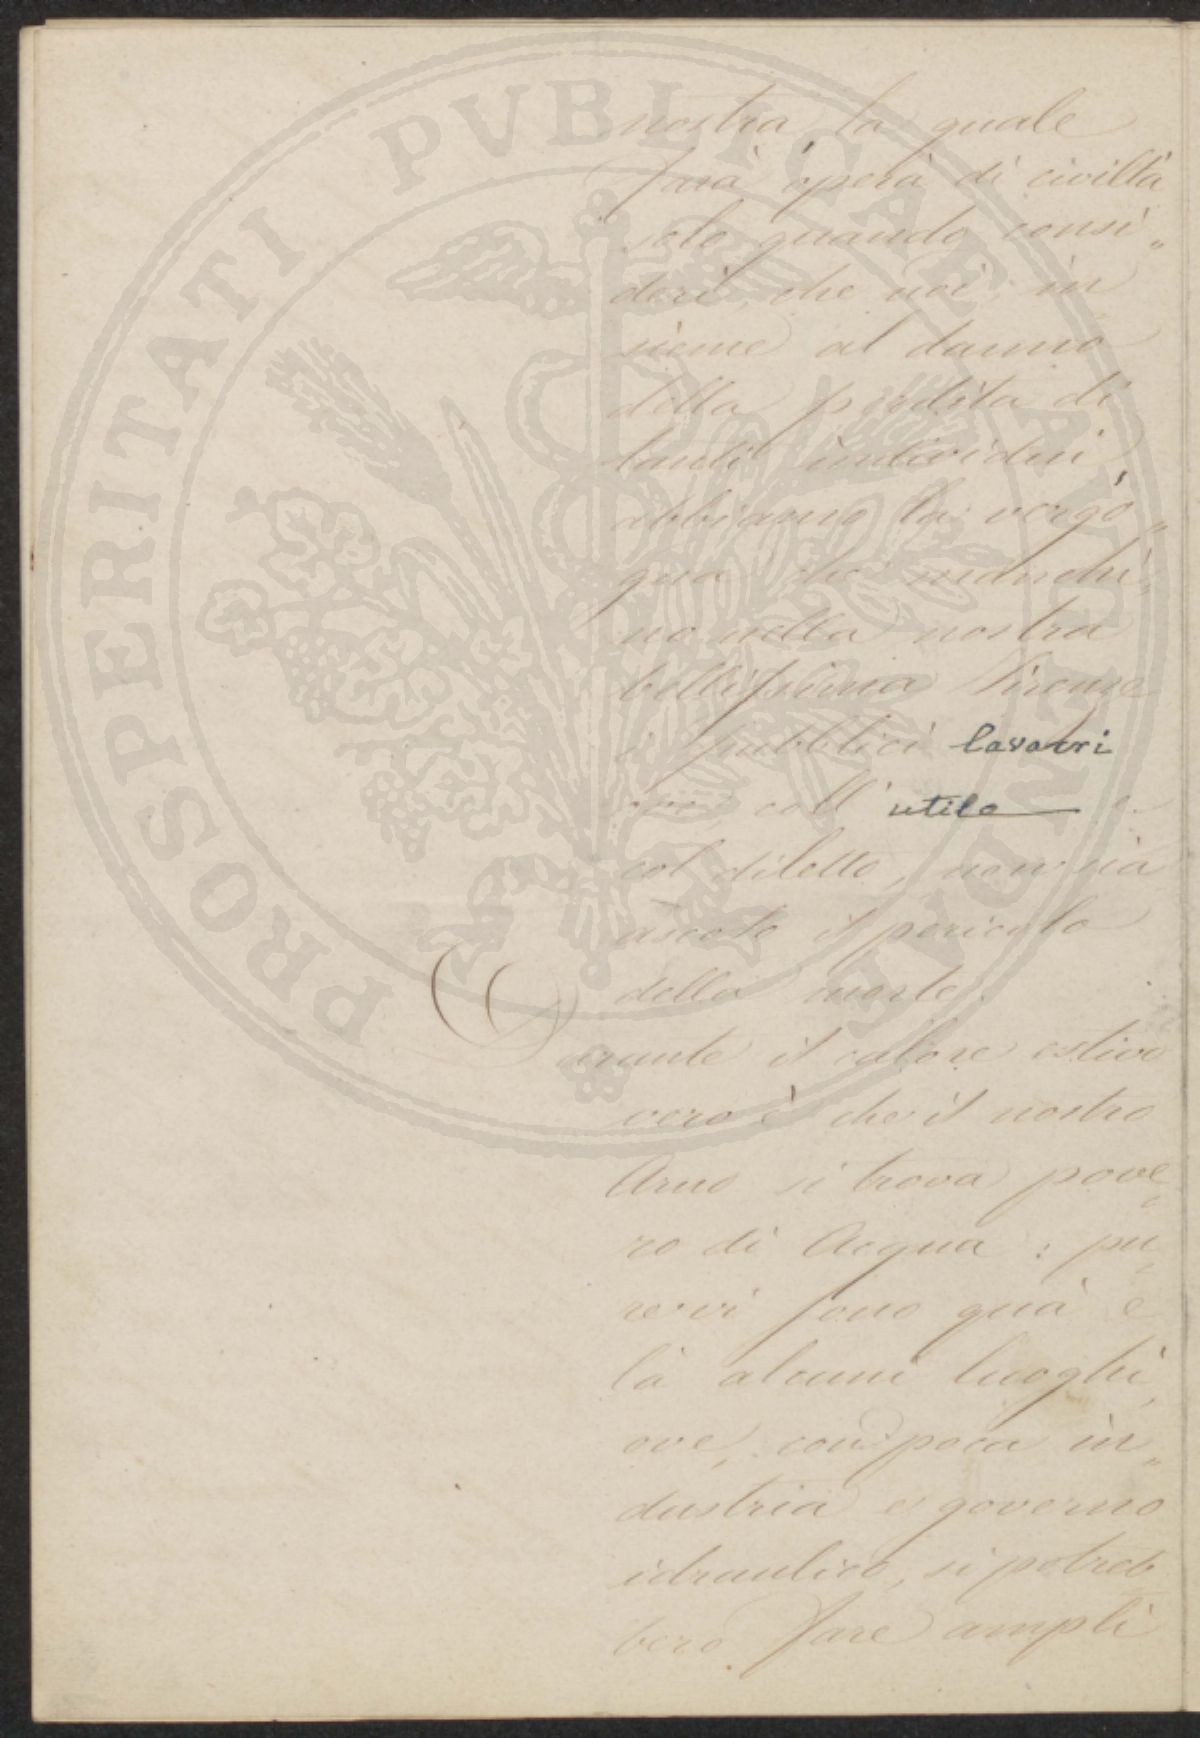 PROSPERITATI PVBLICAE AVGENDAE
nostra, la quale
farà opera di civiltà
solo quando consi„
deri, che noi in
sieme al danno
della perdita di
tanti individui
abbiamo la vergo„
gna che manchi„
no nella nostra
bellissima Firenze
i pubblici lavacri
ove, coll' utile e
col diletto, non sia
ascoso il pericolo
della morte.
Durante il calore estivo
vero è che il nostro
Arno si trova pove„
ro di Acqua: pu„
re vi sono quà e
là alcuni luoghi,
ove, con poca in„
dustria e governo
idraulico, si potreb
bero fare ampli